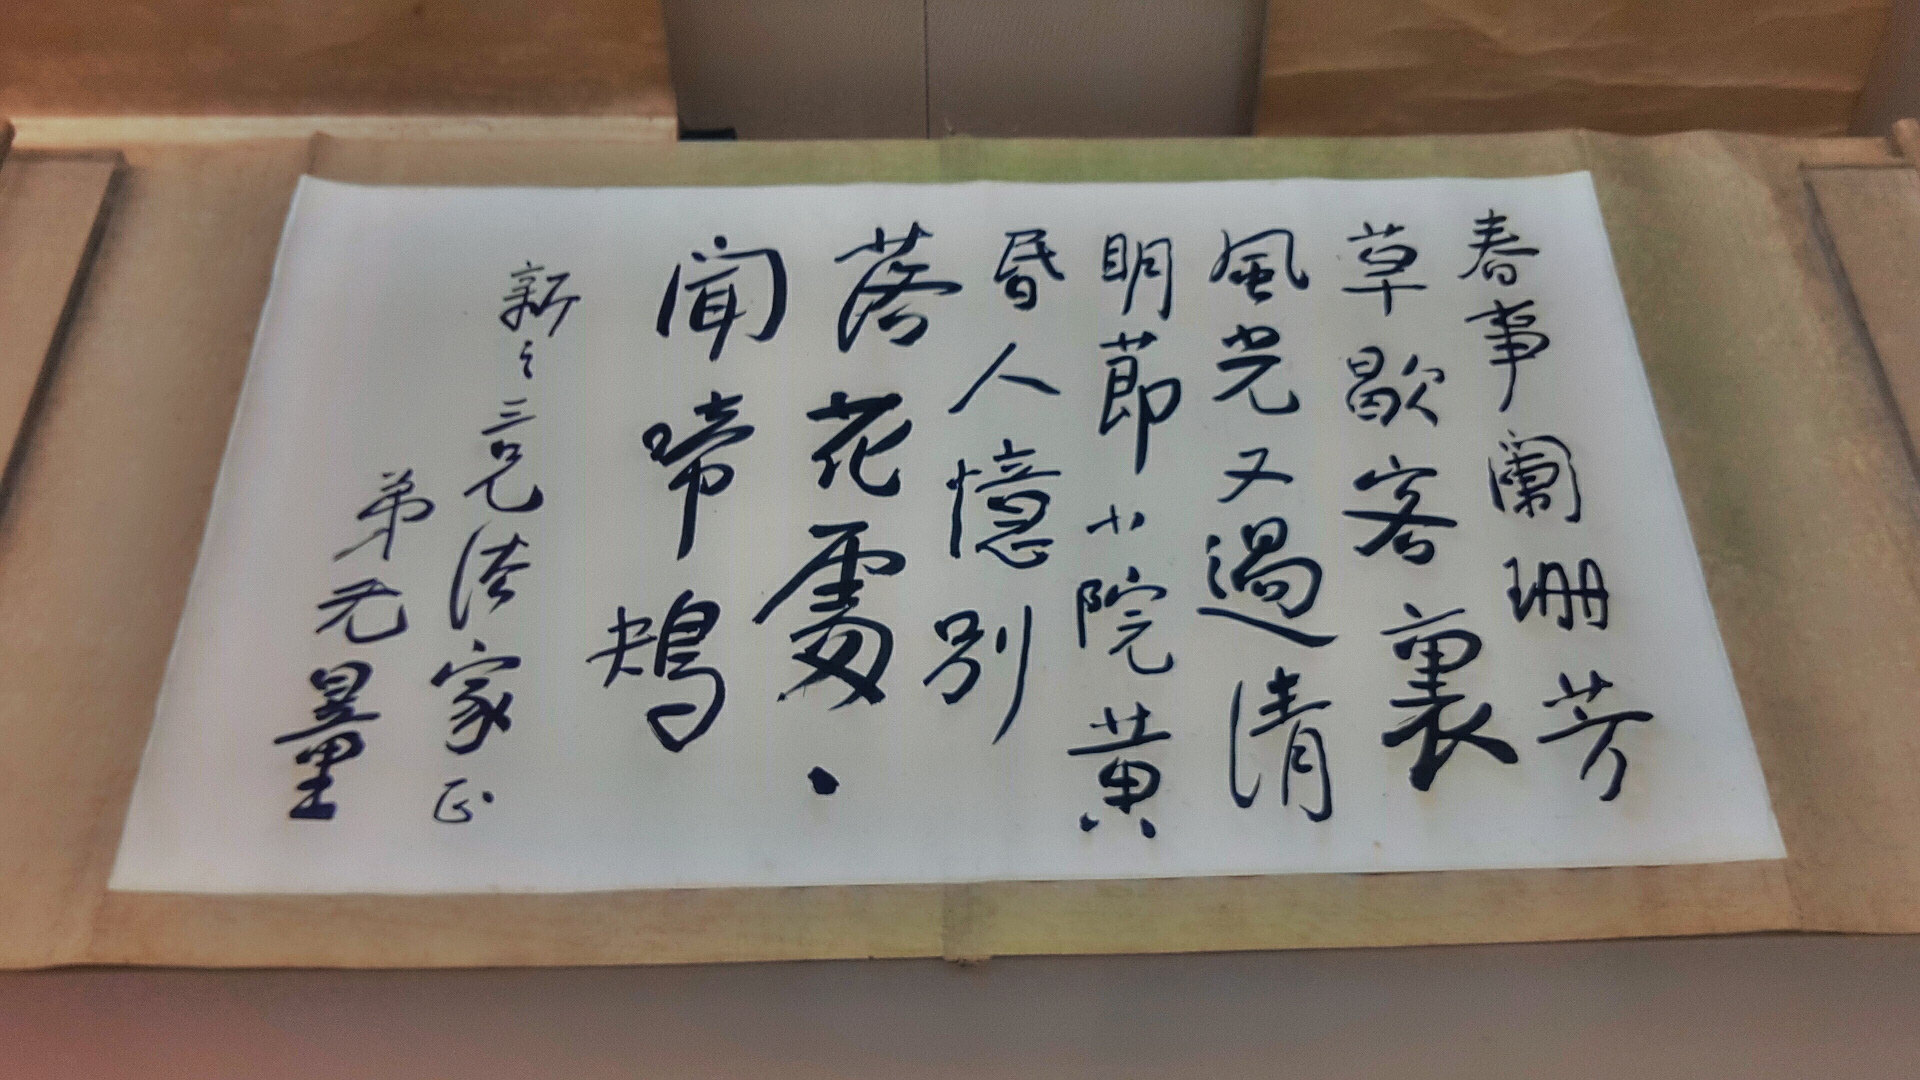 春事闌珊芳
草歇客裏
風光又過清
明節小院黃
昏人憶別
落花處
聞啼鴂
新之三兄法家正
弟无量